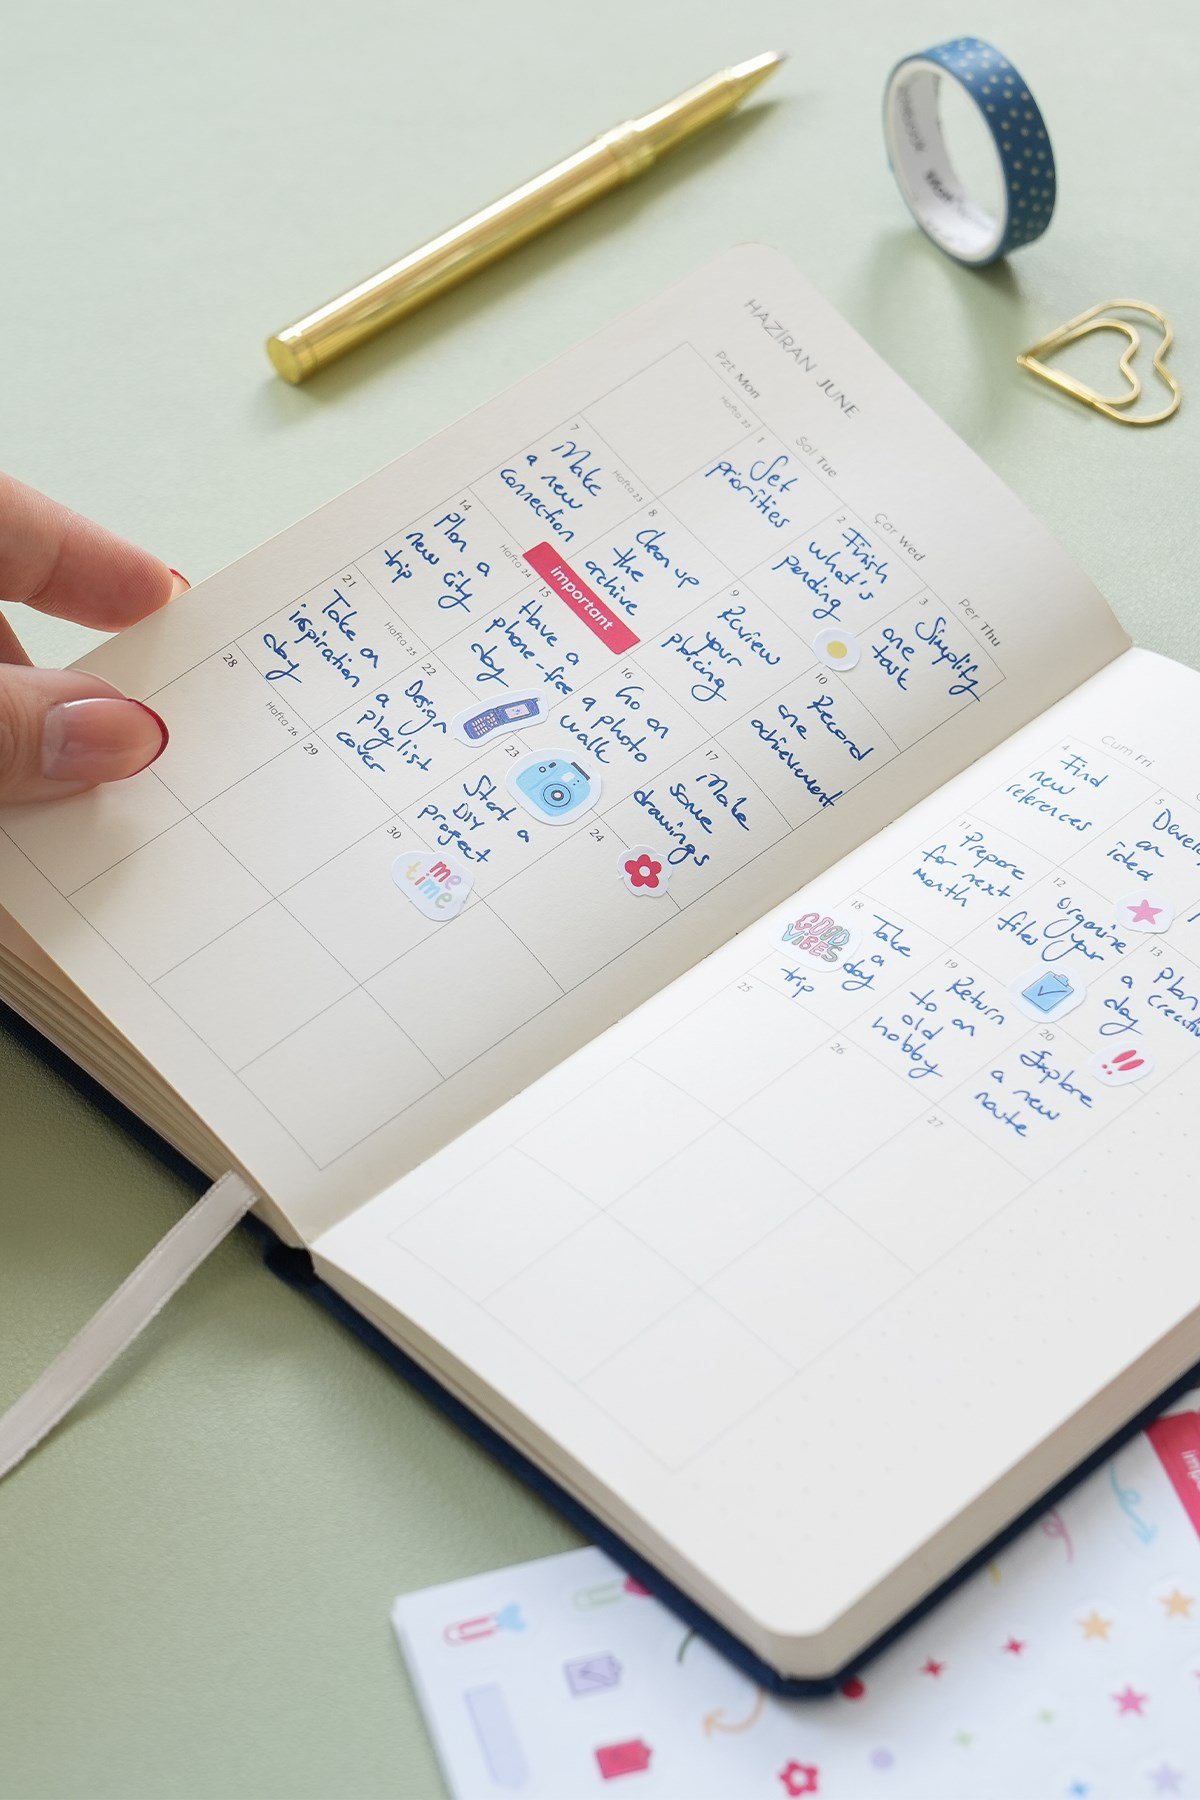 HAZİRAN JUNE
Pzt Mon
Sal Tue
Çar Wed
Per Thu
Hafta 23
1
Set
priorities
2
Finish
what's
pending
3
Simplify
one
task
7
Make
a new
connection
Hafta 23
8
Clean up
the
archive
9
Review
your
10
Record
one
achievement
14
Plan a
new city
trip
Hafta 24
important
15
Have a
phone-free
day
16
Go on
a photo
walk
17
Make
some
drawings
21
Take an
inspiration
day
Hafta 25
22
Design
a
playlist
cover
23
Start a
DIY
project
24
28
Hafta 26
29
30
me
time
Cum Fri
4
Find
new
references
5
an
idea
11
Prepare
for next
month
12
Organise
your
files
13
Plan
a
day
18
GOOD
VIBES
Take
a
day
trip
19
Return
to an
old
hobby
20
Explore
a new
route
25
26
27